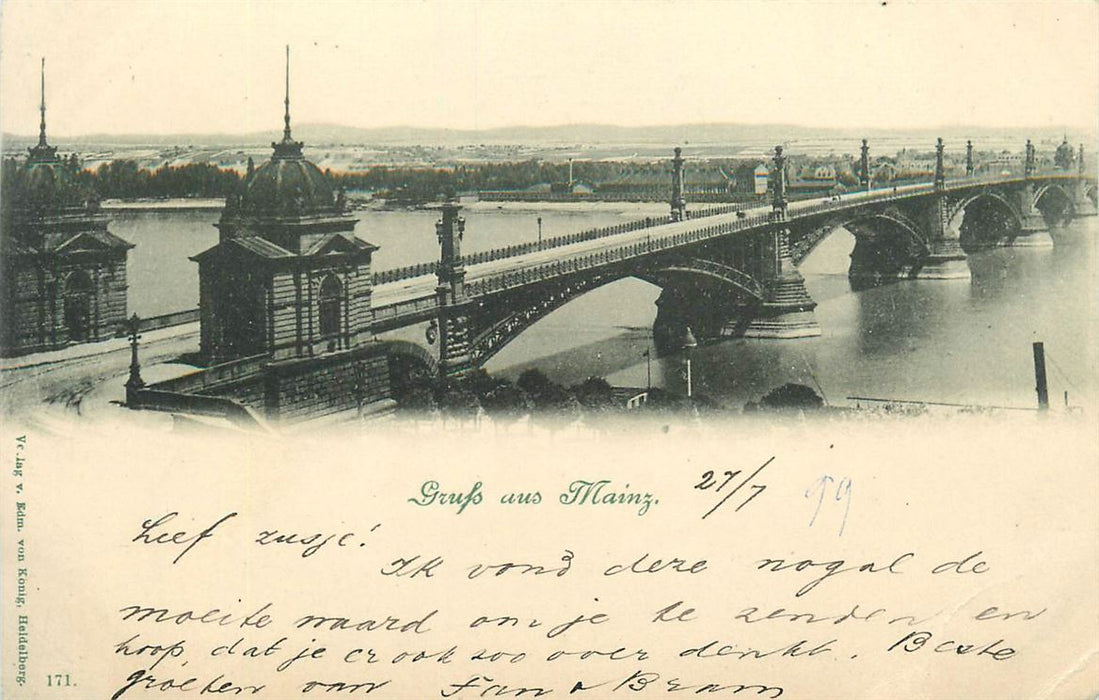 Gruß aus Mainz.
27/7 99
Lief zusje!
Ik vond deze nogal de
moeite waard om je te zenden en
hoop, dat je er ook zoo over denkt. Beste
groeten van Fan & Bram
Verlag v. Edm. von König, Heidelberg.
171.